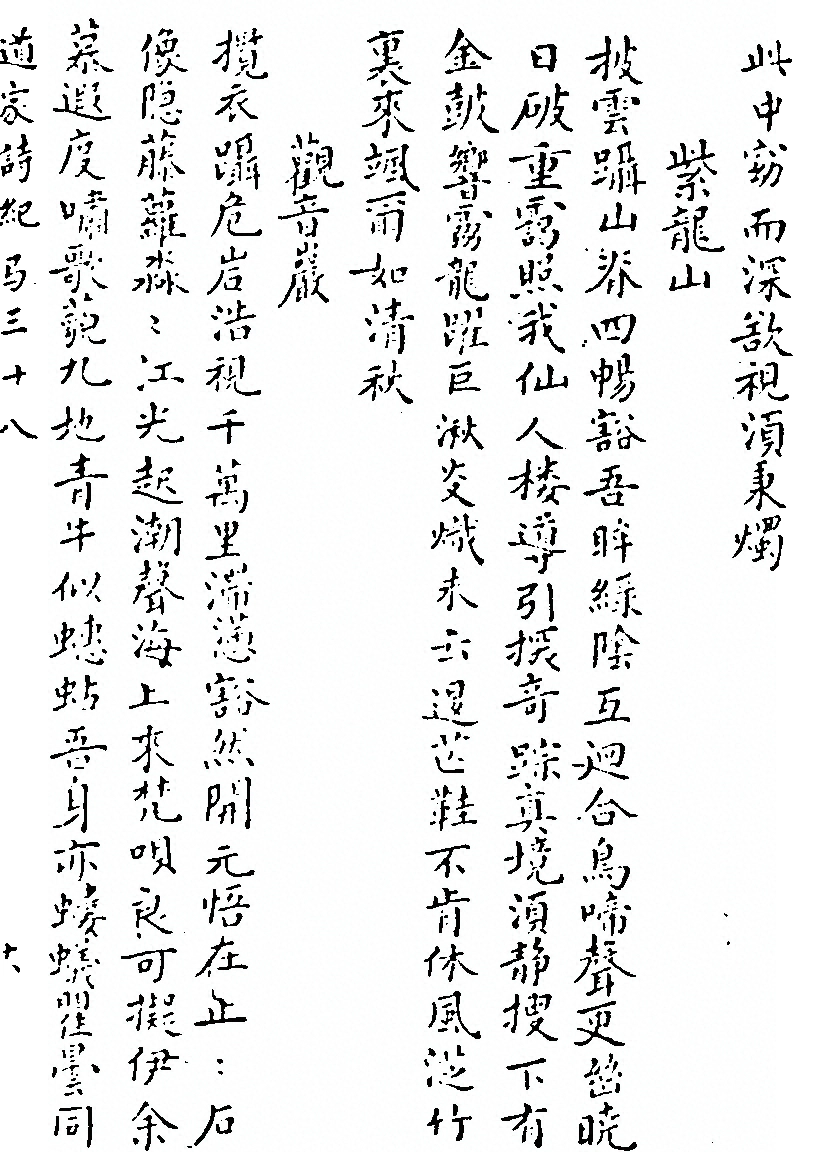 此中窈而深欲視湏秉燭
紫龍山
披雲躡山泰四暢豁吾眸綠陰互迴合鳥啼聲更幽曉
日破重靄照我仙人楼導引探奇踪真境湏静搜下有
金皷響霧龍躍巨湫炎熾未云退芒鞋不肯休風泛竹
裏來颯爾如清秋
觀音巖
攬衣躡危岩浩視千萬里湍蕙豁然開元悟在止：石
像隐藤蘿淼：江光起潮聲海上來梵唄良可擬伊余
慕遐度嘯歌藐九地青牛似蟪蛄吾身亦螻蟻瞿曇同
道家詩紀 三十八 十六